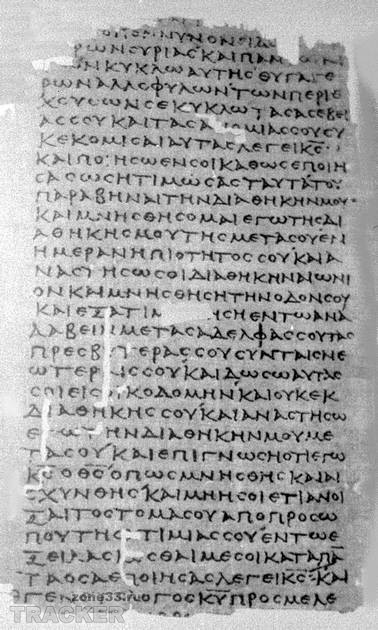 ΝΥΝΟΝΕΙΔ
ΡΩΝΣΥΡΙΑΣΚΑΙΠΑΝ
ΩΝΚΥΚΛΩΑΥΤΗΣΘΥΓΑΤΕ
ΡΩΝΑΛΛΟΦΥΛΩΝΤΩΝΠΕΡΙΕ
ΧΟΥΣΩΝΣΕΚΥΚΛΩΤΑΣΑΣΕΒΕΙ
ΑΣΣΟΥΚΑΙΤΑΣΑΝΟΜΙΑΣΣΟΥΣΥ
ΚΕΚΟΜΙΣΑΙΑΥΤΑΣΛΕΓΕΙΚΣ
ΚΑΙΠΟΙΗΣΩΕΝΣΟΙΚΑΘΩΣΕΠΟΙΗ
ΣΑΣΩΣΗΤΙΜΩΣΑΣΤΑΥΤΑΤΟΥ
ΠΑΡΑΒΗΝΑΙΤΗΝΔΙΑΘΗΚΗΝΜΟΥ
ΚΑΙΜΝΗΣΘΗΣΟΜΑΙΕΓΩΤΗΣΔΙ
ΑΘΗΚΗΣΜΟΥΤΗΣΜΕΤΑΣΟΥΕΝ
ΗΜΕΡΑΝΗΠΙΟΤΗΤΟΣΣΟΥΚΑΙΑ
ΝΑΣΤΗΣΩΣΟΙΔΙΑΘΗΚΗΝΑΙΩΝΙ
ΟΝΚΑΙΜΝΗΣΘΗΣΗΤΗΝΟΔΟΝΣΟΥ
ΚΑΙΕΞΑΤΙΜ ΗΣΗΕΝΤΩΑΝΑ
ΛΑΒΕΙΝΜΕΤΑΣΑΔΕΛΦΑΣΣΟΥΤΑΣ
ΠΡΕΣΒΥΤΕΡΑΣΣΟΥΣΥΝΤΑΙΣΝΕ
ΩΤΕΡΑΙΣΣΟΥΚΑΙΔΩΣΩΑΥΤΑΣ
ΣΟΙΕΙΣΟΙΚΟΔΟΜΗΝΚΑΙΟΥΚΕΚ
ΔΙΑΘΗΚΗΣΣΟΥΚΑΙΑΝΑΣΤΗΣΩ
ΕΓΩΤΗΝΔΙΑΘΗΚΗΝΜΟΥΜΕ
ΤΑΣΟΥΚΑΙΕΠΙΓΝΩΣΗΟΤΙΕΓΩ
ΚΣΟΘΣΟΠΩΣΜΝΗΣΘΗΣΚΑΙΑΙ
ΣΧΥΝΘΗΣΚΑΙΜΗΗΣΟΙΕΤΙΑΝΟΙ
ΞΑΙΤΟΣΤΟΜΑΣΟΥΑΠΟΠΡΟΣΩ
ΠΟΥΤΗΣΑΤΙΜΙΑΣΣΟΥΕΝΤΩΕ
ΞΕΙΛΑΣ ΣΘΑΙΜΕΣΟΙΚΑΤΑΠΑ
ΤΑΟΣΑΕΠΟΙΗΣΑΣΛΕΓΕΙΚΣΚΑΙ
ΕΓΕΝ ΟΓΟΣΚΥΠΡΟΣΜΕΛΕ
zone33.ru
TRACKER